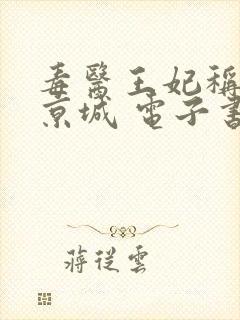 毒醫王妃稱
京城 電子書
蔣從雲